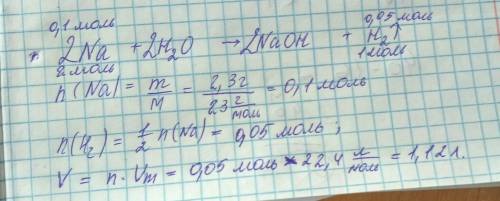 0,1 моль 0,05 моль
2Na + 2H₂O → 2NaOH + H₂↑
2 моль 1 моль
n(Na) = m/M = 2,3г / 23 г/моль = 0,1 моль
n(H₂) = 1/2 n(Na) = 0,05 моль;
V = n · Vm = 0,05 моль × 22,4 л/моль = 1,12 л.